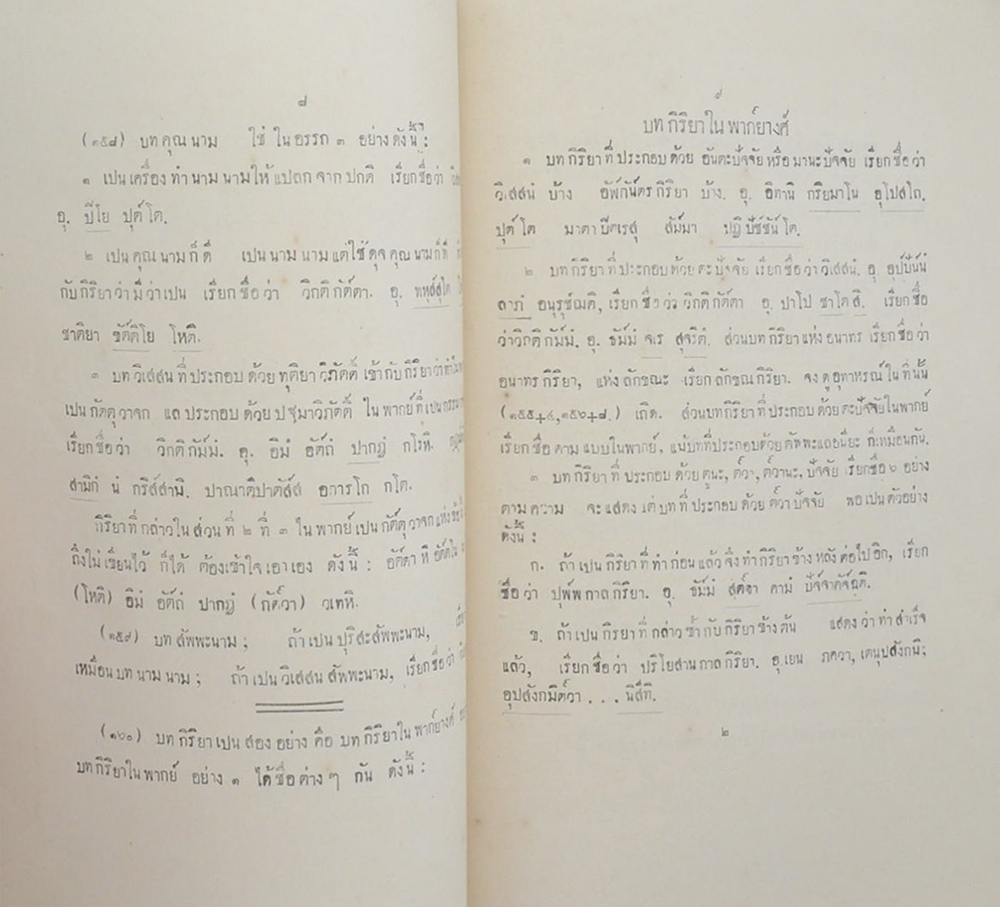 ๘
(๑๕๘) บท คุณ นาม ใช้ ใน อรรถ ๓ อย่าง ดังนี้ :
๑ เปน เครื่อง ทำ นาม นาม ให้ แปลก จาก ปกติ เรียก ชื่อ ว่า
อุ. ปิโย ปุตฺโต.
๒ เปน คุณ นาม ก็ ดี เปน นาม นาม แต่ ใช้ ดุจ คุณ นาม ก็ ดี
กับ กิริยา ว่า มี ว่า เปน เรียก ชื่อ ว่า วิกติ กัตตา. อุ. พหสฺสุโต
ชาติยา ขตฺติโย โหติ.
๓ บท วิเสสน ที่ ประกอบ ด้วย ทุติยา วิภัตติ เข้า กับ กิริยา ว่า ทำ
เปน กัตตุวาจก แล ประกอบ ด้วย ปฐมาวิภัตติ ใน พากย์ ที่ เปน
เรียก ชื่อ ว่า วิกติ กัมมํ. อุ. อิมํ อตฺถํ ปากฏํ กโรหิ.
สามิกํ นํ กริสฺสามิ. ปาณาติปาตสฺส อการโก กโต.
กิริยา ที่ กล่าว ใน ส่วน ที่ ๒ ที่ ๓ ใน พากย์ เปน กัตตุวาจก แห่ง
ถึง ไม่ เขียน ไว้ ก็ ได้ ต้อง เข้า ใจ เอา เอง ดังนี้ : อตฺตา หิ อตฺตโน
(โหติ) อิมํ อตฺถํ ปากฏํ (กตฺวา) วเทหิ.
(๑๕๙) บท สัพพะนาม ; ถ้า เปน ปุริสะสัพพะนาม,
เหมือน บท นาม นาม ; ถ้า เปน วิเสสน สัพพะนาม, เรียก ชื่อ ว่า
(๑๖๐) บท กิริยา เปน สอง อย่าง คือ บท กิริยา ใน พากย์ยางค์
บท กิริยา ใน พากย์ อย่าง ๑ ได้ ชื่อ ต่าง ๆ กัน ดังนี้ :
๙
บท กิริยา ใน พากย์ยางค์
๑ บท กิริยา ที่ ประกอบ ด้วย อันตะปัจจัย หรือ มานะปัจจัย เรียก ชื่อ ว่า
วิเสสนํ บ้าง อัพภันตร กิริยา บ้าง. อุ. อิทานิ กริยมาโน อุโปสโถ.
ปุตฺโต มาตาปิตเรสุ สมฺมา ปฏิปชฺชนฺโต.
๒ บท กิริยา ที่ ประกอบ ด้วย ตะปัจจัย เรียก ชื่อ ว่า วิเสสนํ. อุ. อุปฺปนฺนํ
ลาภํ อนุรุชฺฌติ, เรียก ชื่อ ว่า วิกติ กัตตา อุ. ปาโป ชาโตสิ. เรียก ชื่อ
ว่า วิกติ กัมมํ. อุ. ธมฺมํ จเร สุจริตํ. ส่วน บท กิริยา แห่ง อนาทร เรียก ชื่อ ว่า
อนาทร กิริยา, แห่ง ลักขณะ เรียก ลักขณ กิริยา. จง ดู อุทาหรณ์ ใน ที่ นั้น
(๑๕๕+๔,๑๕๖+๘.) เถิด. ส่วน บท กิริยา ที่ ประกอบ ด้วย ตะปัจจัย ใน พากย์
เรียก ชื่อ ตาม แบบ ใน พากย์, แม้ บท ที่ ประกอบ ด้วย ตัพพะ แล อนียะ ก็ เหมือน กัน.
๓ บท กิริยา ที่ ประกอบ ด้วย ตูนะ, ตฺวา, ตฺวานะ, ปัจจัย เรียก ชื่อ ๖ อย่าง
ตาม ความ จะ แสดง แต่ บท ที่ ประกอบ ด้วย ตฺวา ปัจจัย พอ เปน ตัวอย่าง
ดังนี้ :
ก. ถ้า เปน กิริยา ที่ ทำ ก่อน แล้ว จึ่ง ทำ กิริยา ข้าง หลัง ต่อ ไป อีก, เรียก
ชื่อ ว่า ปุพฺพ กาล กิริยา. อุ. ธมฺมํ สุตฺวา คามํ ปจฺจาคจฺฉติ.
ข. ถ้า เปน กิริยา ที่ กล่าว ซ้ำ กับ กิริยา ข้าง ต้น แสดง ว่า ทำ สำเร็จ
แล้ว, เรียก ชื่อ ว่า ปริโยสาน กาล กิริยา. อุ. เยน ภควา, เตนุปสงฺกมิ;
อุปสงฺกมิตฺวา . . . นิสีทิ.
๒